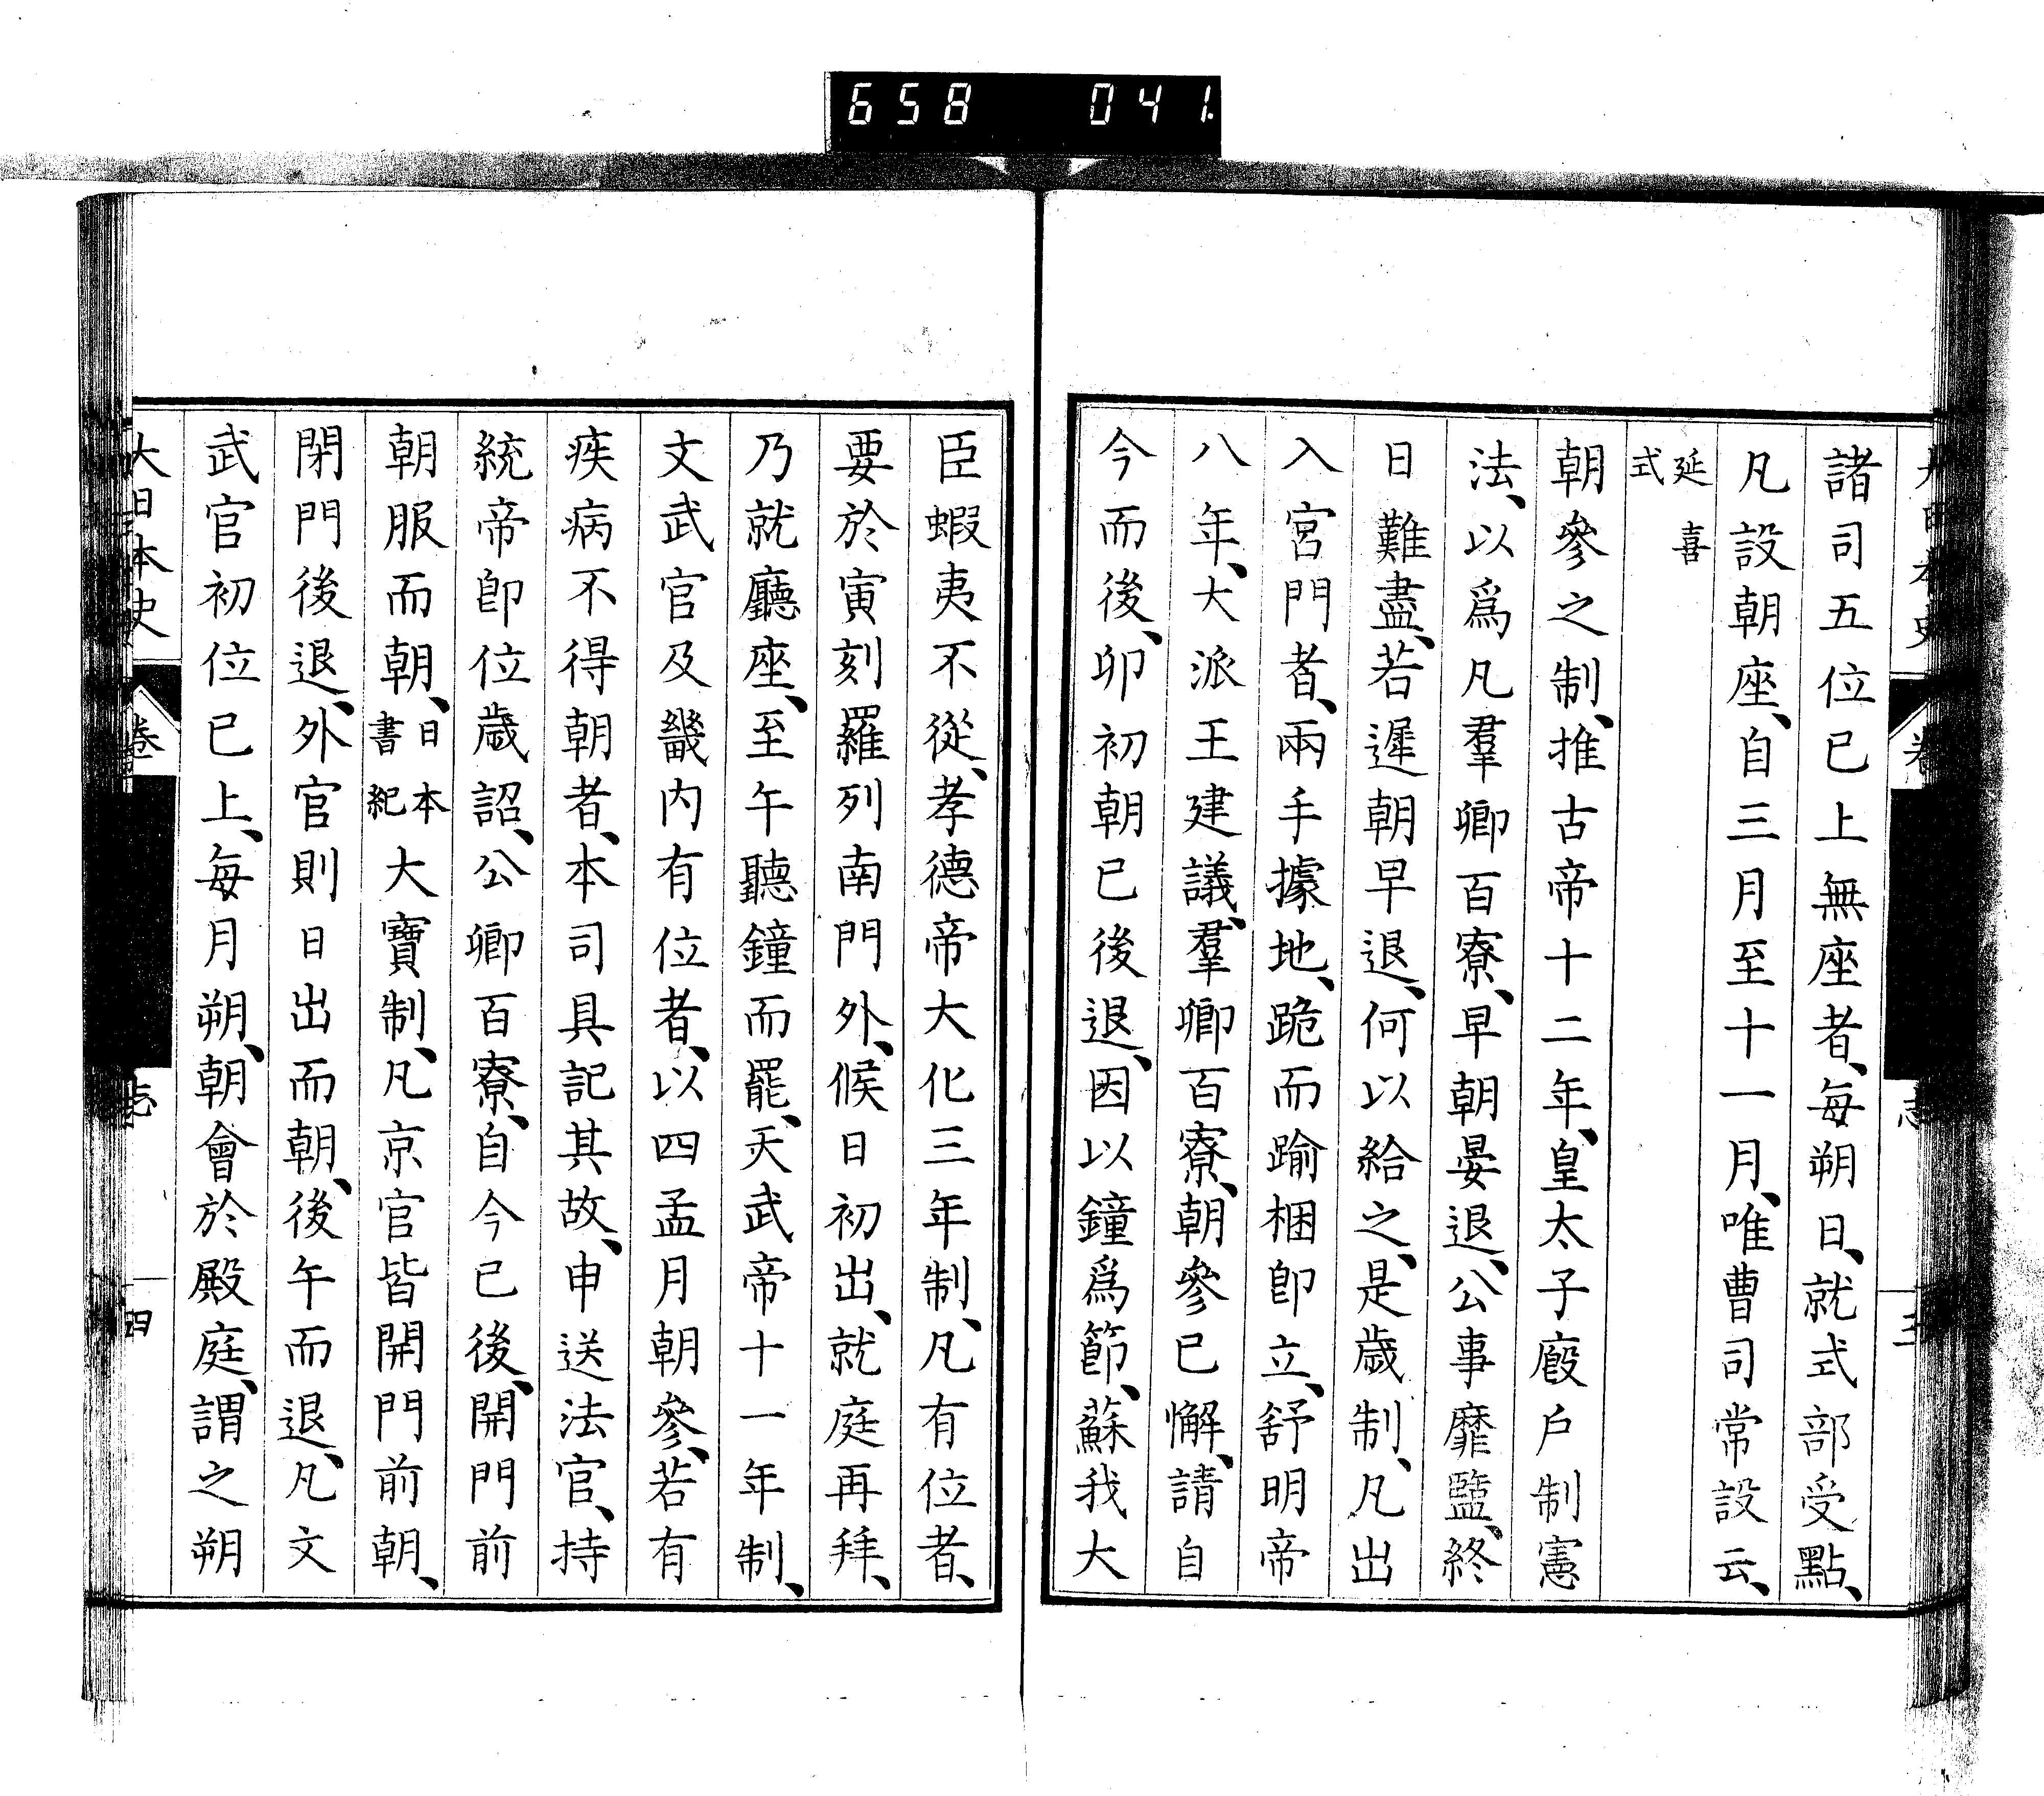 658 041
諸司五位已上無座者、每朔日、就式部受點、
凡設朝座、自三月至十一月、唯曹司常設云、
延喜
式
朝參之制、推古帝十二年、皇太子廐戶制憲
法、以爲凡羣卿百寮、早朝晏退、公事靡盬、終
日難盡、若遲朝早退、何以給之、是歲制、凡出
入宮門者、兩手據地、跪而踰梱卽立、舒明帝
八年、大派王建議、羣卿百寮、朝參已懈、請自
今而後、卯初朝已後退、因以鐘爲節、蘇我大
臣蝦夷不從、孝德帝大化三年制、凡有位者、
要於寅刻羅列南門外、候日初出、就庭再拜、
乃就廳座、至午聽鐘而罷、天武帝十一年制、
文武官及畿內有位者、以四孟月朝參、若有
疾病不得朝者、本司具記其故、申送法官、持
統帝卽位歲詔、公卿百寮、自今已後、開門前
朝服而朝、日本書紀大寶制、凡京官皆開門前朝、
閉門後退、外官則日出而朝、後午而退、凡文
武官初位已上、每月朔、朝會於殿庭、謂之朔
大日本史
卷
志
四